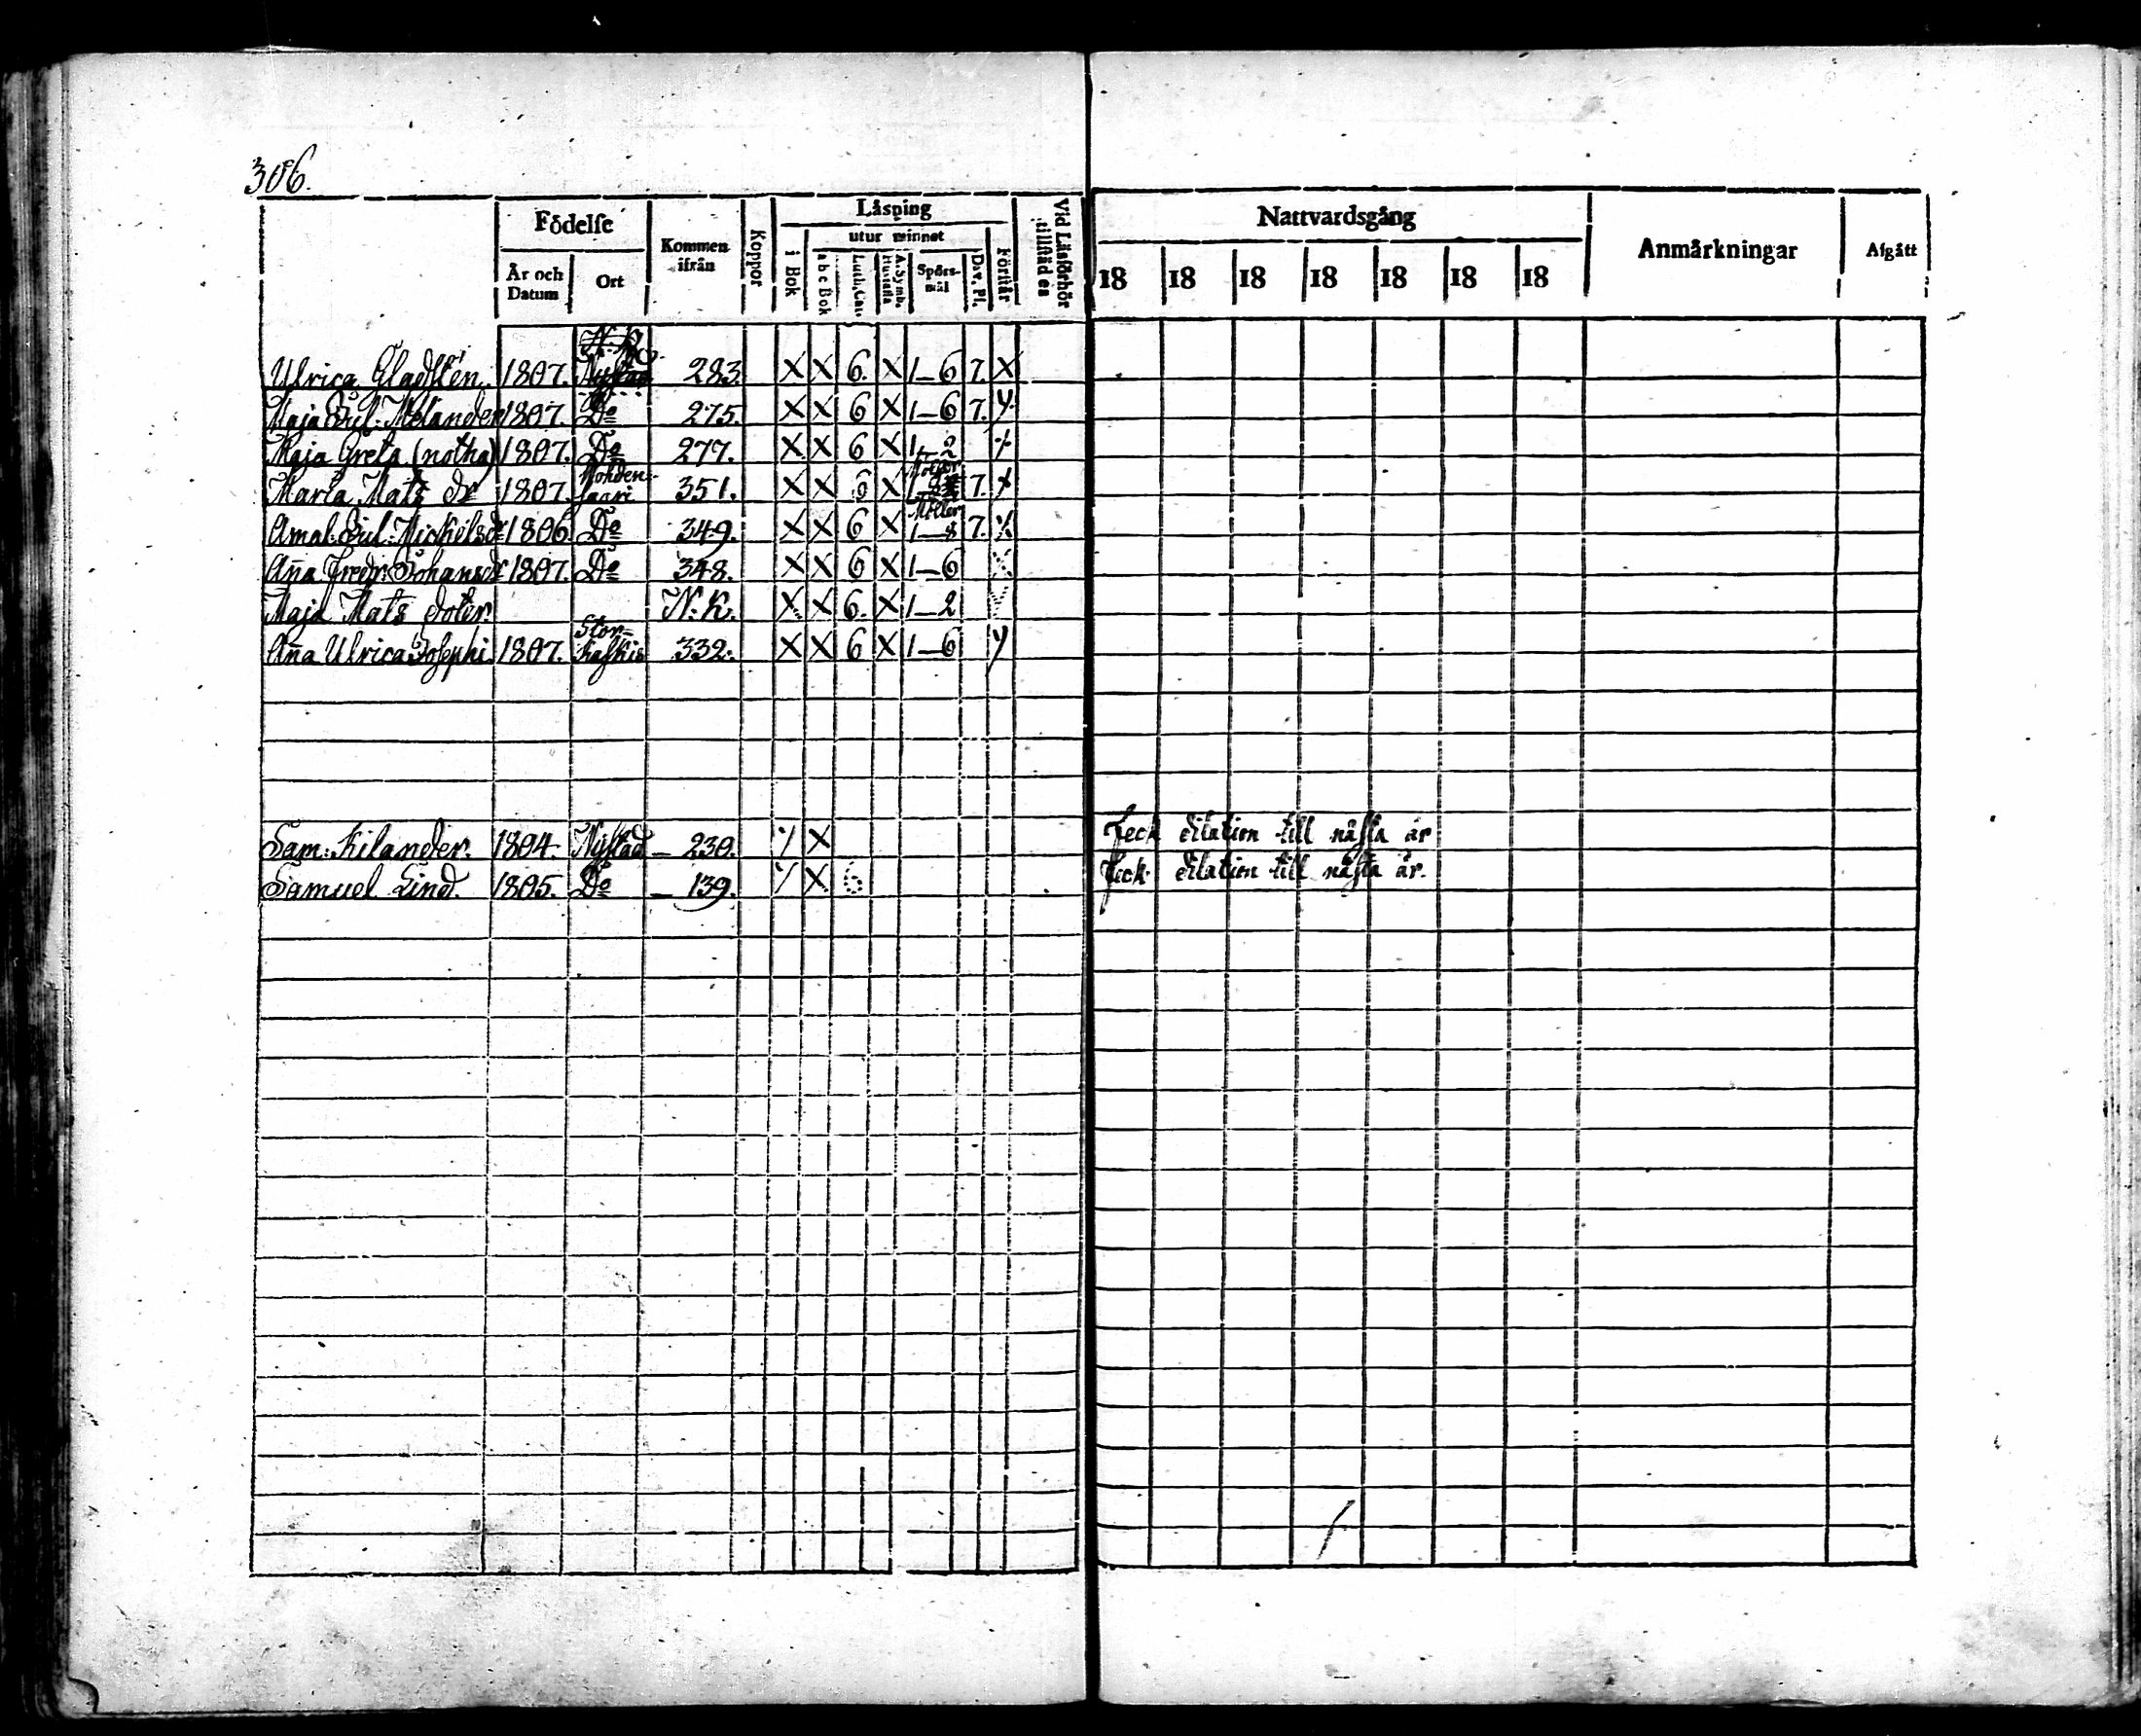 306.
Födelse Kommen ifrån Koppor Läsning Vid Läsförhör tillstädes Nattvardsgång Anmärkningar Afgått
utur minnet
År och Datum Ort i Bok a b c Bok Luth. Cat. A. Symb. Hustafla Spörsmål Dav. Ps. Förstår 18 18 18 18 18 18 18
Ulrica Gladstén. 1807. Nystad 283. X X 6. X 1–6 7. X
Maja Eul: Melander 1807. Do 275. X X 6 X 1–6 7.
Maja Greta (notha) 1807. Do 277. X X 6 X 1–2
Maria Mats dr 1807. saari 351. X X 6 X 7.
Amal. Eul: Mickelsdr 1806. Do 349. X X 6 X Möller 1–8 7.
Aña Fredr. Johansdr 1807. Do 348. X X 6 X 1–6
Maja Mats doter. N: K. X X 6. X 1–2
Aña Ulrica Josephi. 1807. Stor=kaskis 332. X X 6 X 1–6
Sam: Kilander. 1804. Nystad – 230. X Feck dilation till nästa år
Samuel Lind. 1805. Do – 139. X 6 Feck dilation till nästa år.